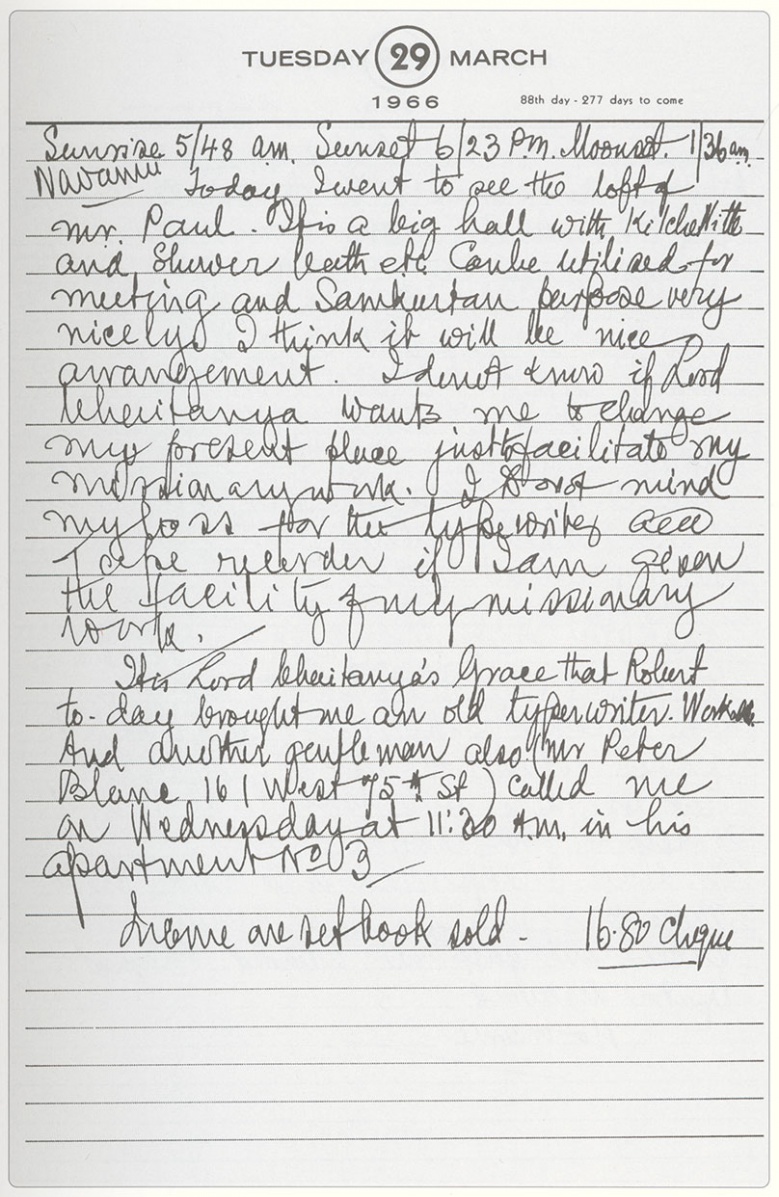 TUESDAY 29 MARCH
1966
88th day - 277 days to come
Sunrise 5/48 am. Sunset 6/23 P.M. Moonset. 1/36 am.
Navami Today I went to see the loft of
mr. Paul. It is a big hall with
and Shower bath etc. Can be utilised for
meeting and Samkirtan purpose very
nicely. I think it will be nice
arrangement. I do not know if Lord
Chaitanya wants me to change
my present place just to facilitate my
missionary work. I do not mind
my loss for the typewriter and
Tape recorder if I am given
the facility of my missionary
work.
It is Lord Chaitanya's Grace that Robert
to-day brought me an old typewriter.
And another gentleman also (mr Peter
Blane 161 West 75th St) called me
on Wednesday at 11:30 A.M. in his
apartment No 3
Income one set book sold - 16.80 Cheque